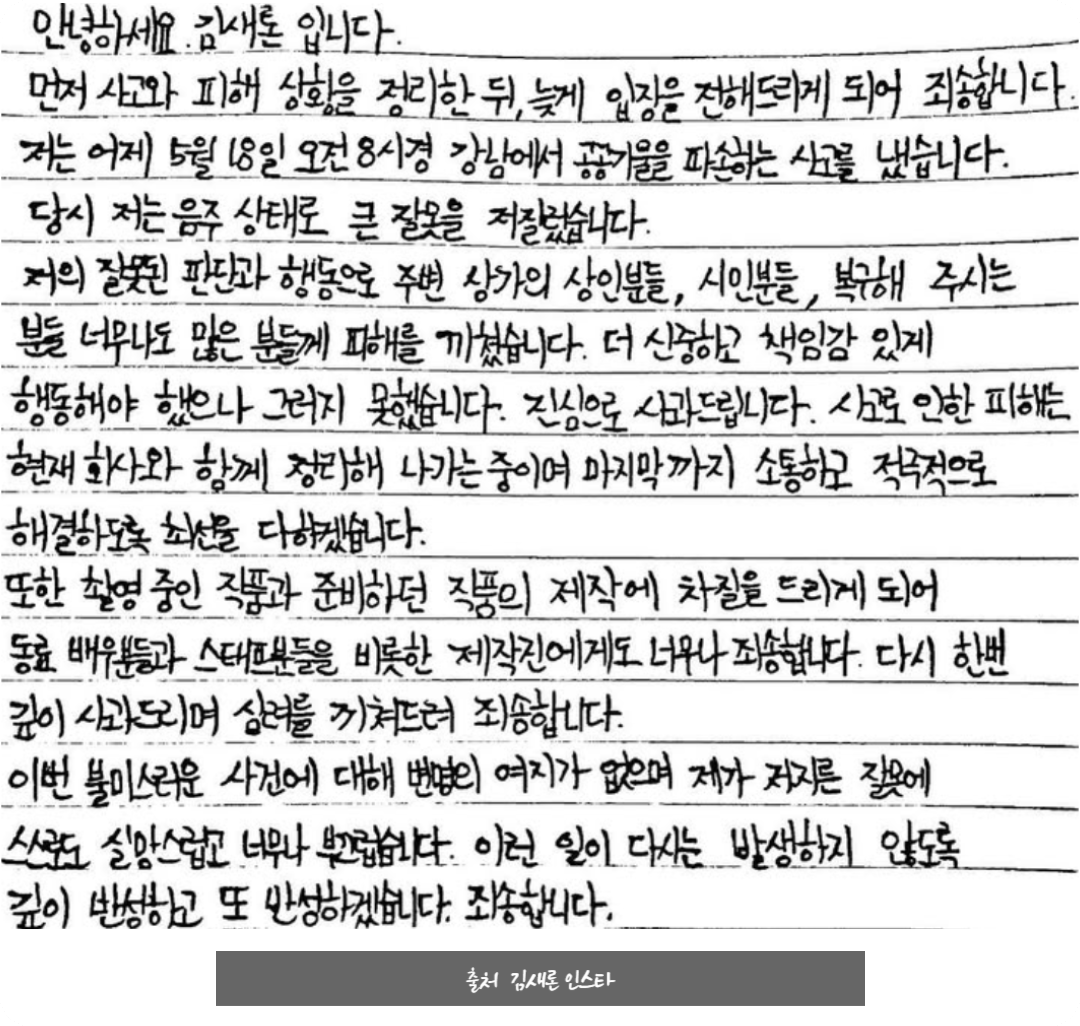 안녕하세요. 김새론 입니다.
먼저 사고와 피해 상황을 정리한 뒤, 늦게 입장을 전해드리게 되어 죄송합니다.
저는 어제 5월 18일 오전 8시경 강남에서 공공기물을 파손하는 사고를 냈습니다.
당시 저는 음주 상태로 큰 잘못을 저질렀습니다.
저의 잘못된 판단과 행동으로 주변 상가의 상인분들, 시민분들, 복구해 주시는
분들 너무나도 많은 분들께 피해를 끼쳤습니다. 더 신중하고 책임감 있게
행동해야 했으나 그러지 못했습니다. 진심으로 사과드립니다. 사고로 인한 피해는
현재 회사와 함께 정리해 나가는 중이며 마지막까지 소통하고 적극적으로
해결하도록 최선을 다하겠습니다.
또한 촬영 중인 작품과 준비하던 작품의 제작에 차질을 드리게 되어
동료 배우분들과 스태프분들을 비롯한 제작진에게도 너무나 죄송합니다. 다시 한번
깊이 사과드리며 심려를 끼쳐드려 죄송합니다.
이번 불미스러운 사건에 대해 변명의 여지가 없으며 제가 저지른 잘못에
스스로도 실망스럽고 너무나 부끄럽습니다. 이런 일이 다시는 발생하지 않도록
깊이 반성하고 또 반성하겠습니다. 죄송합니다.
출처 김새론 인스타